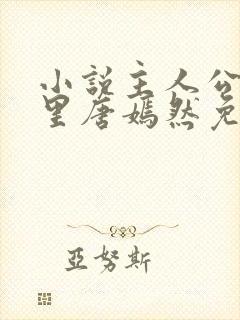 小説主人公
里唐嫣然免
亞努斯